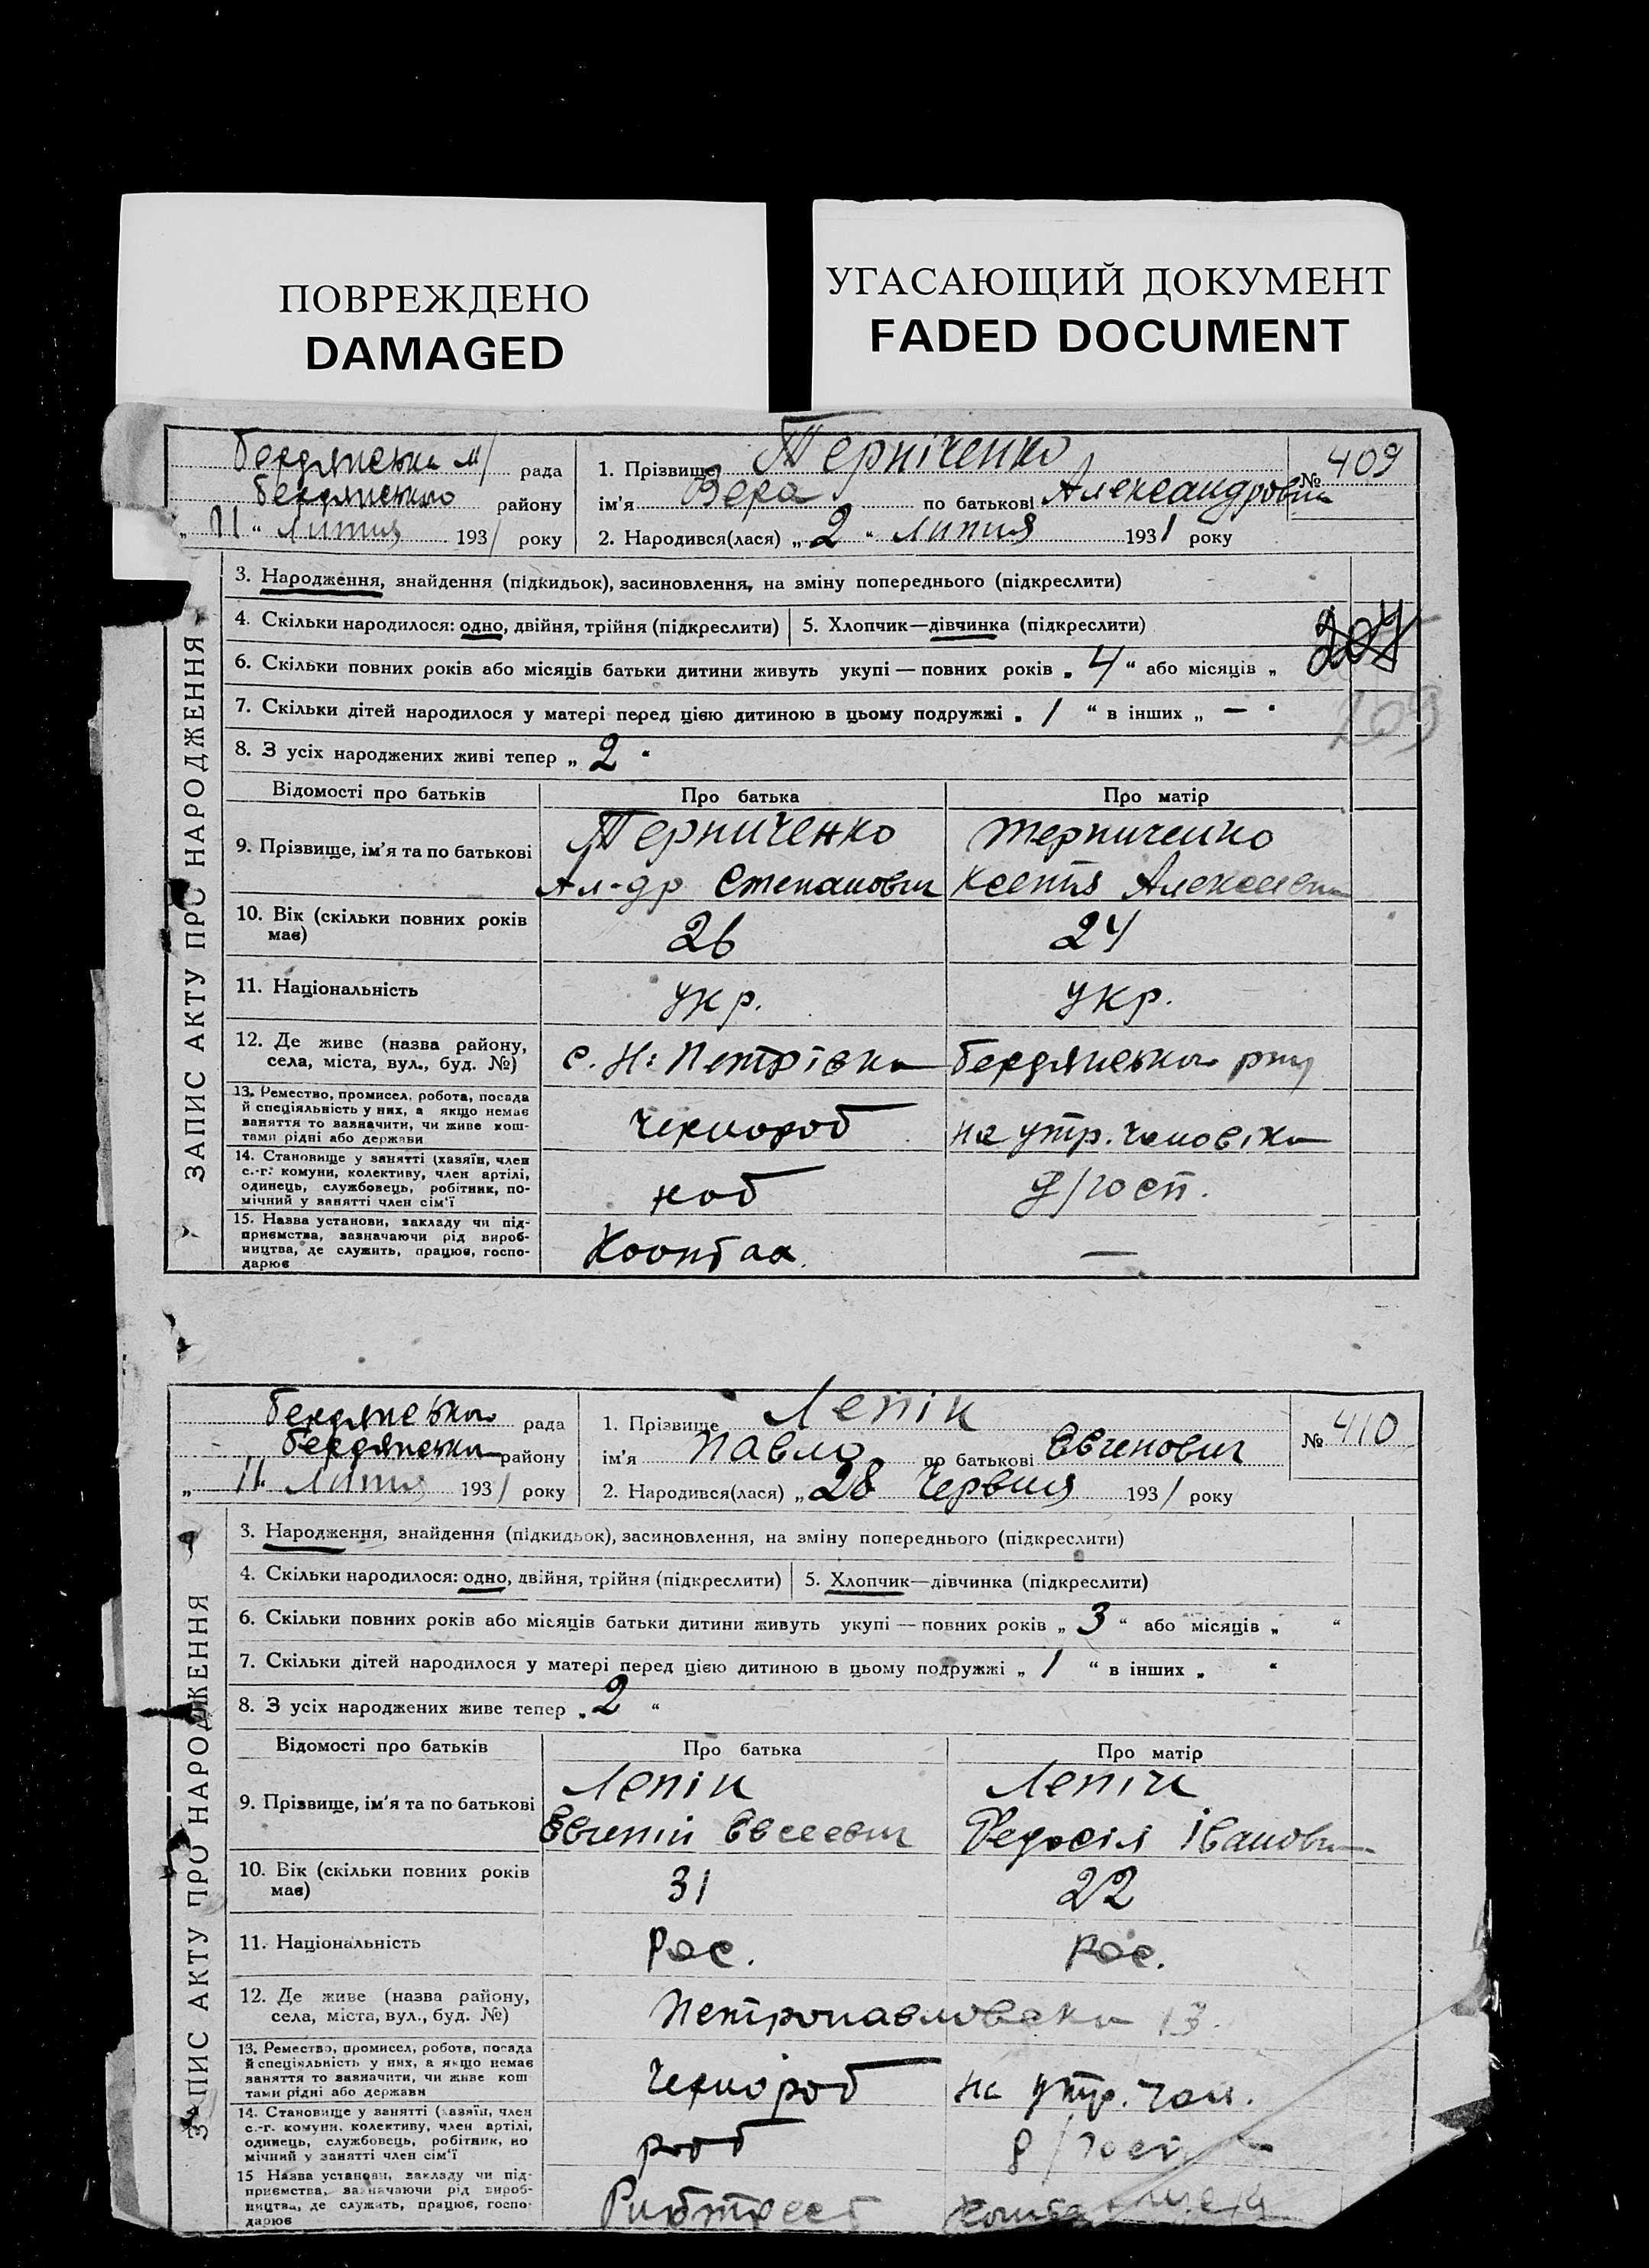 ПОВРЕЖДЕНО
DAMAGED
УГАСАЮЩИЙ ДОКУМЕНТ
FADED DOCUMENT
ЗАПИС АКТУ ПРО НАРОДЖЕННЯ
Бердянська м/ рада
Бердянського району
„11“ Липня 1931 року
1. Прізвище Терпіченко
ім'я Вера по батькові Александровна
№ 409
2. Народився(лася) „2“ липня 1931 року
3. Народження, знайдення (підкидьок), засиновлення, на зміну попереднього (підкреслити)
4. Скільки народилося: одно, двійня, трійня (підкреслити) 5. Хлопчик—дівчинка (підкреслити)
6. Скільки повних років або місяців батьки дитини живуть укупі — повних років „4“ або місяців „
7. Скільки дітей народилося у матері перед цією дитиною в цьому подружжі „1“ в інших „ —
209
8. З усіх народжених живі тепер „2“
Відомості про батьків Про батька Про матір
9. Прізвище, ім'я та по батькові
Терпиченко Терпиченко
Ал-др Степанович
10. Вік (скільки повних років має) 26 24
11. Національність укр. укр.
12. Де живе (назва району, села, міста, вул., буд. №) с. Н: Петрівка Бердянського р-ну
13. Ремество, промисел, робота, посада
й спеціяльність у них, а якщо немає
заняття то зазначити, чи живе кош-
тами рідні або держави
Чернороб на утр. чоловіка
14. Становище у занятті (хазяїн, член
с.-г. комуни, колективу, член артілі,
одинець, службовець, робітник, по-
мічний у занятті член сім'ї
роб д/госп.
15. Назва установи, закладу чи під-
приємства, зазначаючи рід вироб-
ництва, де служить, працює, госпо-
дарює
—
ЗАПИС АКТУ ПРО НАРОДЖЕННЯ
Бердянська рада
Бердянського району
„11“ Липня 1931 року
1. Прізвище Лепіх
ім'я Павло по батькові Євгенович
№ 410
2. Народився(лася) „28 Червня 1931 року
3. Народження, знайдення (підкидьок), засиновлення, на зміну попереднього (підкреслити)
4. Скільки народилося: одно, двійня, трійня (підкреслити) 5. Хлопчик—дівчинка (підкреслити)
6. Скільки повних років або місяців батьки дитини живуть укупі — повних років „3“ або місяців „ “
7. Скільки дітей народилося у матері перед цією дитиною в цьому подружжі „1“ в інших „ “
8. З усіх народжених живе тепер „2“
Відомості про батьків Про батька Про матір
9. Прізвище, ім'я та по батькові
Лепіх Лепіх
Євгеній Євсеевич Федосія Івановна
10. Вік (скільки повних років має) 31 22
11. Національність Рос. Рос.
12. Де живе (назва району, села, міста, вул., буд. №) Петропавловска 13
13. Ремество, промисел, робота, посада
й спеціяльність у них, а якщо немає
заняття то зазначити, чи живе кош
тами рідні або держави
Чернороб на утр. чол.
14. Становище у занятті (хазяїн, член
с.-г. комуни, колективу, член артілі,
одинець, службовець, робітник, по
мічний у занятті член сім'ї
роб д/госп
15 Назва установи, закладу чи під-
приємства, зазначаючи рід вироб-
ництва, де служить, працює, госпо-
дарює
Рибтрест